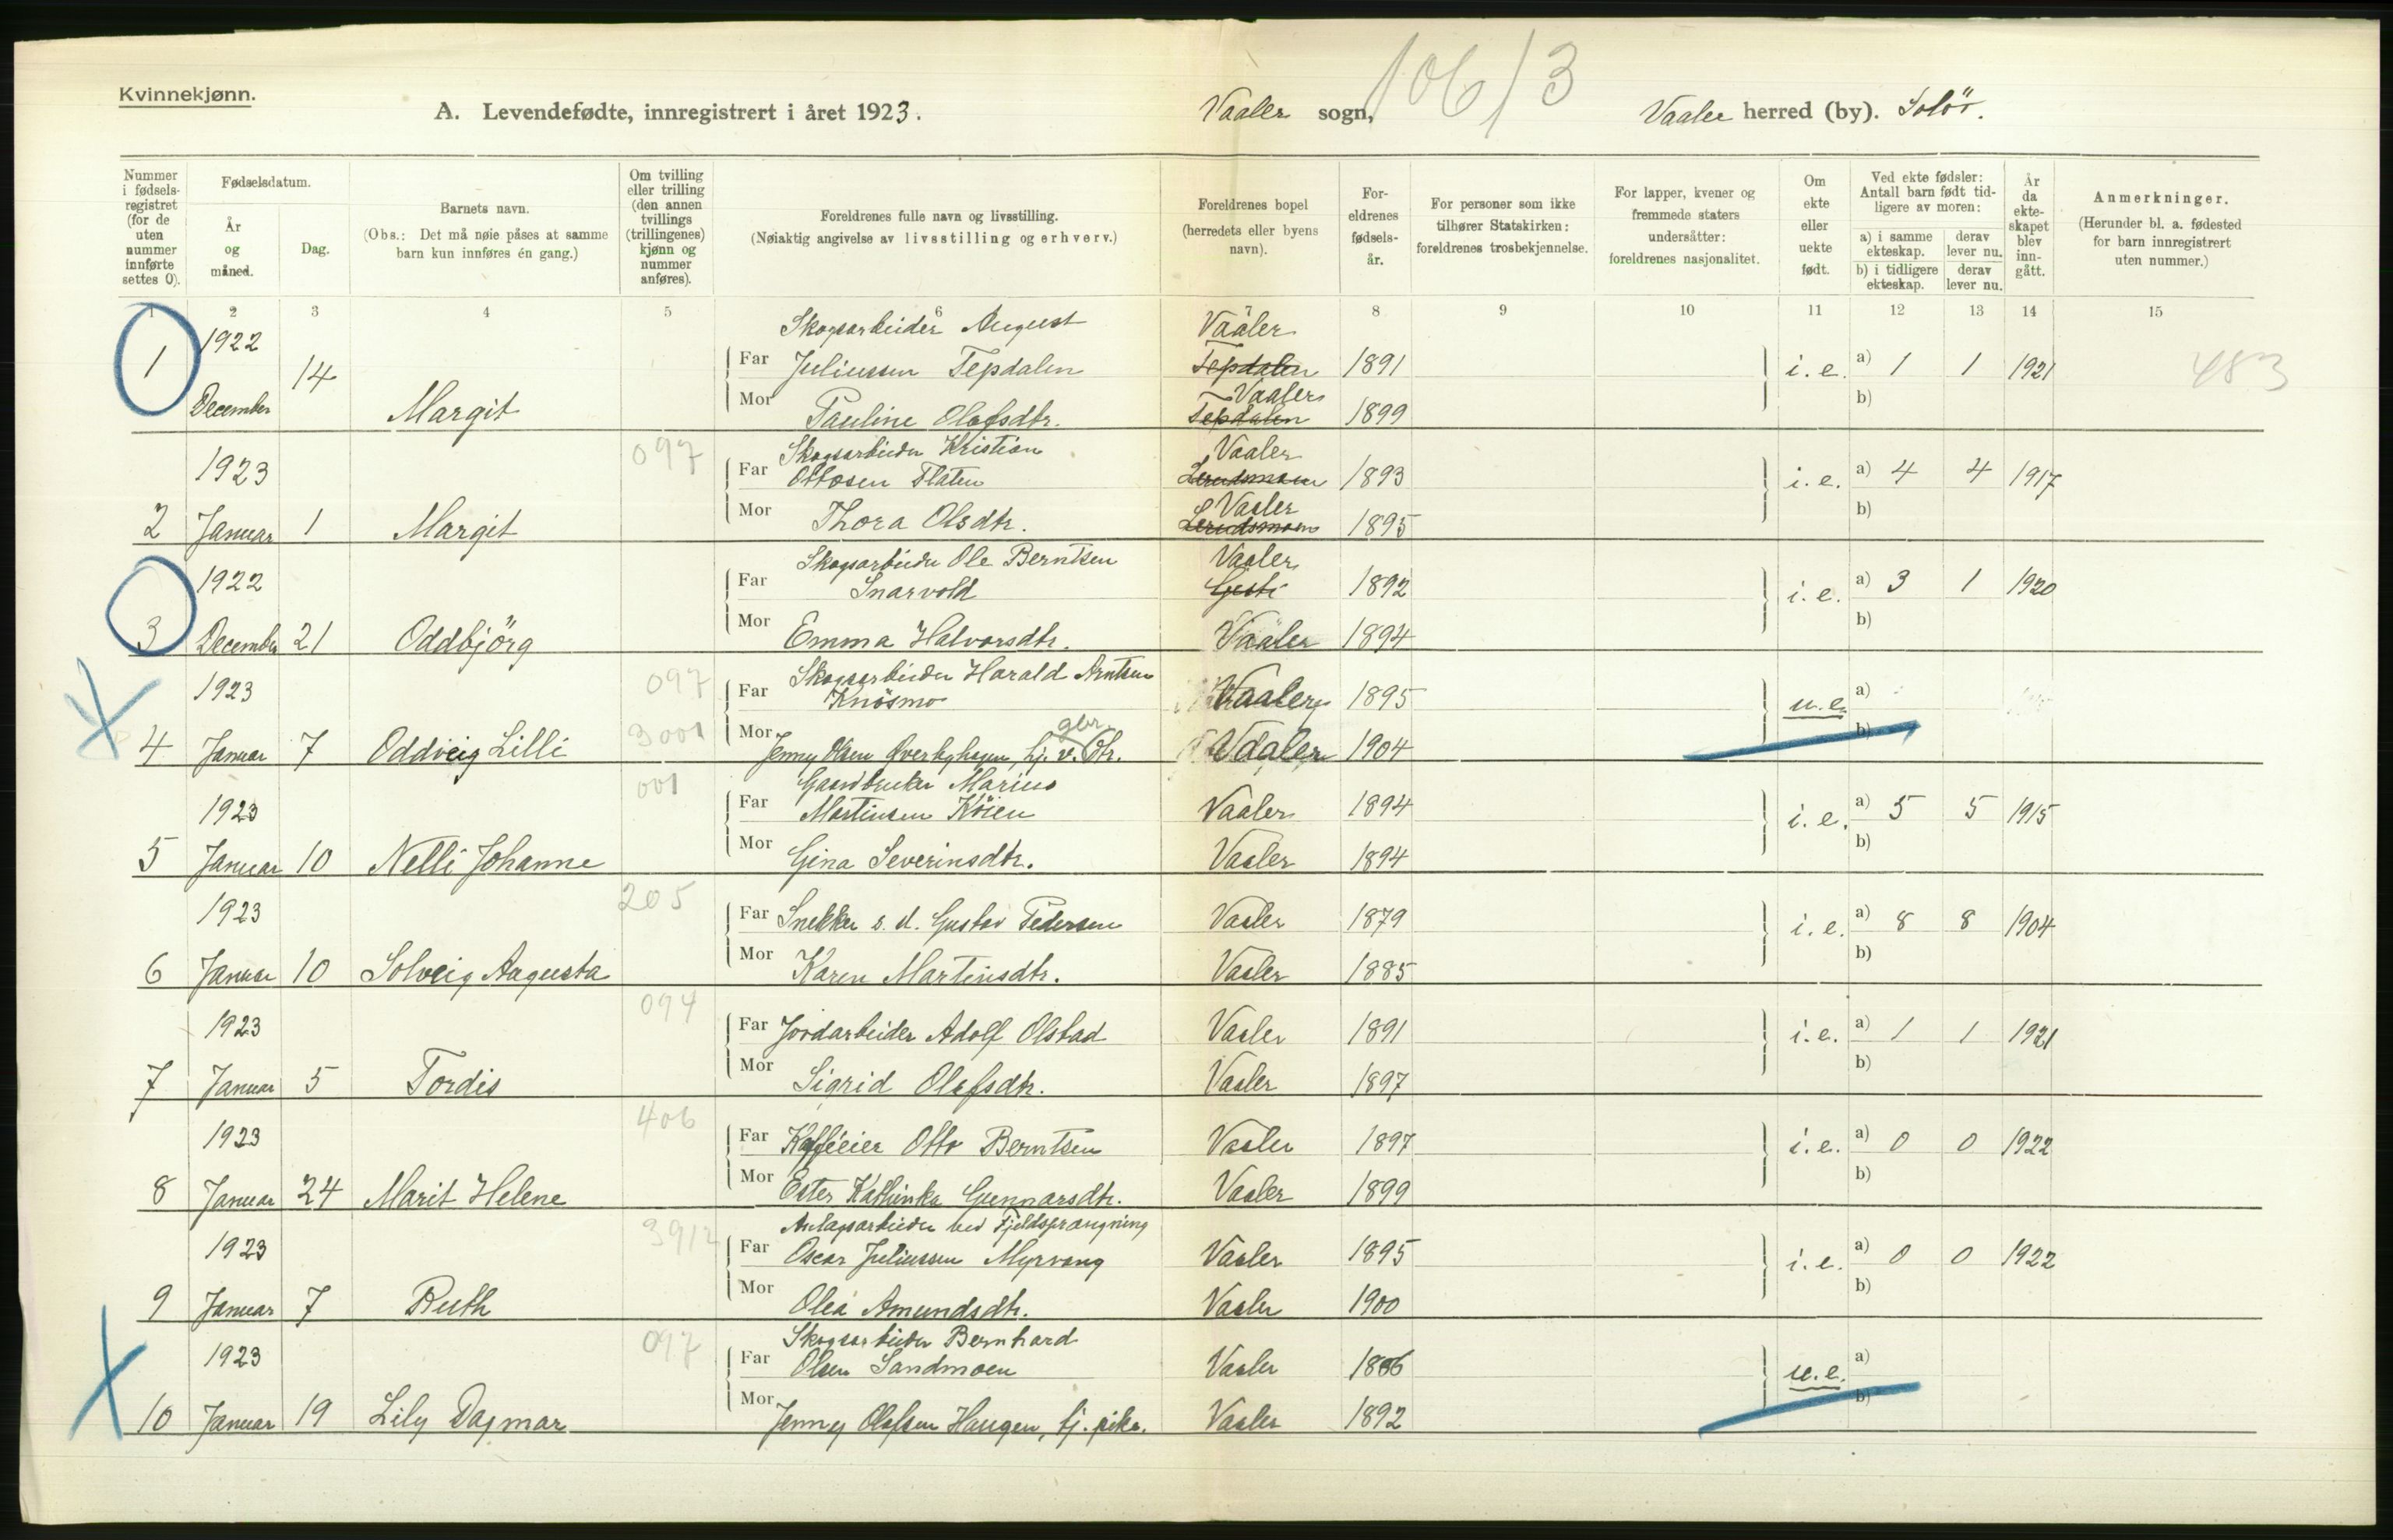 Kvinnekjønn.
A. Levendefødte, innregistrert i året 1923.
Vaaler sogn,
106/3
Vaaler herred (by). Solör.
Nummer i fødsels-registret (for de uten nummer innførte settes 0).
Fødselsdatum.
År og måned.
Dag.
Barnets navn.
(Obs.: Det må nøie påses at samme barn kun innføres én gang.)
Om tvilling eller trilling (den annen tvillings (trillingenes) kjønn og nummer anføres).
Foreldrenes fulle navn og livsstilling.
(Nøiaktig angivelse av livsstilling og erhverv.)
Foreldrenes bopel (herredets eller byens navn).
For-eldrenes fødsels-år.
For personer som ikke tilhører Statskirken: foreldrenes trosbekjennelse.
For lapper, kvener og fremmede staters undersåtter: foreldrenes nasjonalitet.
Om ekte eller uekte født.
Ved ekte fødsler: Antall barn født tid-ligere av moren:
a) i samme ekteskap.
derav lever nu.
b) i tidligere ekteskap.
derav lever nu.
År da ekte-skapet blev inn-gått.
Anmerkninger.
(Herunder bl. a. fødested for barn innregistrert uten nummer.)
1 2 3 4 5 6 8 9 10 11 12 13 14 15
1 1922 December 14 Margit
Skogsarbeider August
Far Juliussen Tepdalen Vaaler Tepdalen 1891 i.e. a) 1 1 1921 483
Mor Pauline Olafsdtr. Vaaler Tepdalen 1899 b)
2 1923 Januar 1 Margit 097
Skogsarbeider Kristian
Far Ottosen Flaten Vaaler 1893 i.e. a) 4 4 1917
Mor Thora Olsdtr. Vaaler 1895 b)
3 1922 December 21 Oddbjörg
Skogsarbeider Ole Berntsen
Far Snarvold Vaaler 1892 i.e. a) 3 1 1920
Mor Emma Halvorsdtr. Vaaler 1894 b)
4 1923 Januar 7 Oddveig Lilli 097 3001
Skogsarbeider Harald Arntsen
Far Knösmo Vaaler 1895 u.e. a)
gbr.
Mor Jenny Olsen Overbyhagen, tj. v. Dtr. Vaaler 1904 b)
5 1923 Januar 10 Nelli Johanne 001
Gaardbruker Marius
Far Martinsen Köien Vaaler 1894 i.e. a) 5 5 1915
Mor Gina Severinsdtr. Vaaler 1894 b)
6 1923 Januar 10 Solveig Augusta 205
Far Snekker s. d. Gustav Pedersen Vaaler 1879 i.e. a) 8 8 1904
Mor Karen Martinsdtr. Vaaler 1885 b)
7 1923 Januar 5 Tordis 094
Far Jordarbeider Adolf Olstad Vaaler 1891 i.e. a) 1 1 1921
Mor Sigrid Olafsdtr. Vaaler 1897 b)
8 1923 Januar 24 Marit Helene 406
Far Kafféeier Otto Berntsen Vaaler 1897 i.e. a) 0 0 1922
Mor Ester Kathinka Gunnarsdtr. Vaaler 1899 b)
9 1923 Januar 7 Ruth 3912
Anlagsarbeider ved Fjeldsprængning
Far Oscar Juliussen Myrvang Vaaler 1895 i.e. a) 0 0 1922
Mor Olea Amundsdtr. Vaaler 1900 b)
10 1923 Januar 19 Lily Dagmar 097
Skogsarbeider Bernhard
Far Olsen Sandmoen Vaaler u.e. a)
Mor Jenny Olafsen Haugen, tj. pike. Vaaler 1892 b)